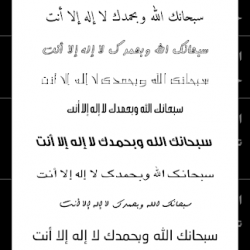 سبحانك الله وبحمدك لا إله إلا أنت
سبحانك الله وبحمدك لا إله إلا أنت
سبحانك الله وبحمدك لا إله إلا أنت
سبحانك الله وبحمدك لا إله إلا أنت
سبحانك الله وبحمدك لا إله إلا أنت
سبحانك الله وبحمدك لا إله إلا أنت
سبحانك الله وبحمدك لا إله إلا أنت
سبحانك الله وبحمدك لا إله إلا أنت